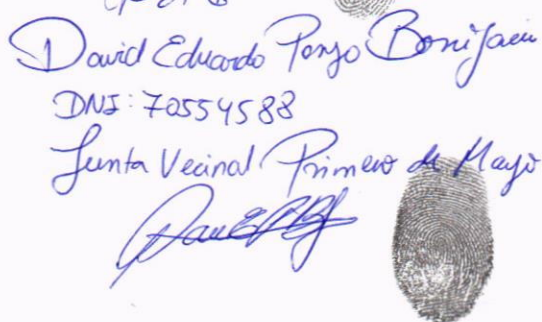 David Eduardo Ponzo Bonifacio
DNI: 70554588
Junta Vecinal Primero de Mayo